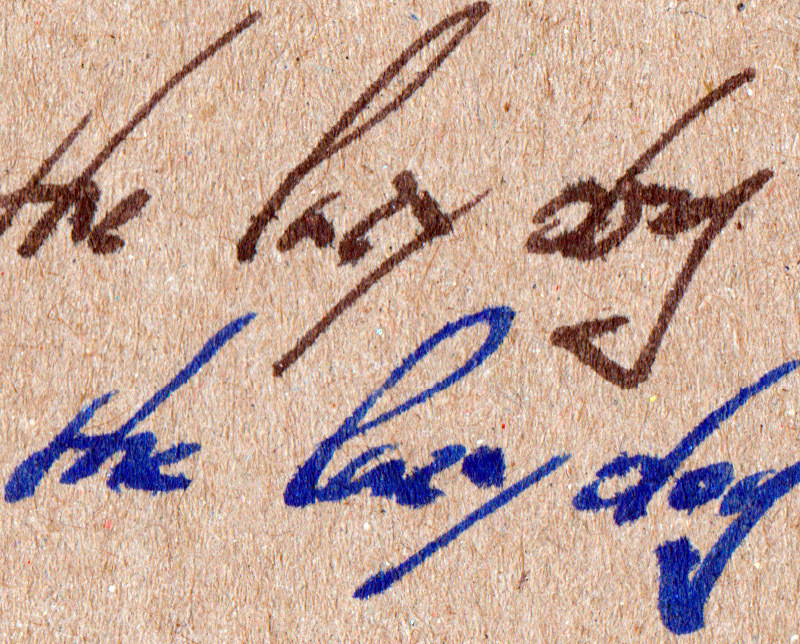 the lazy dog
the lazy dog